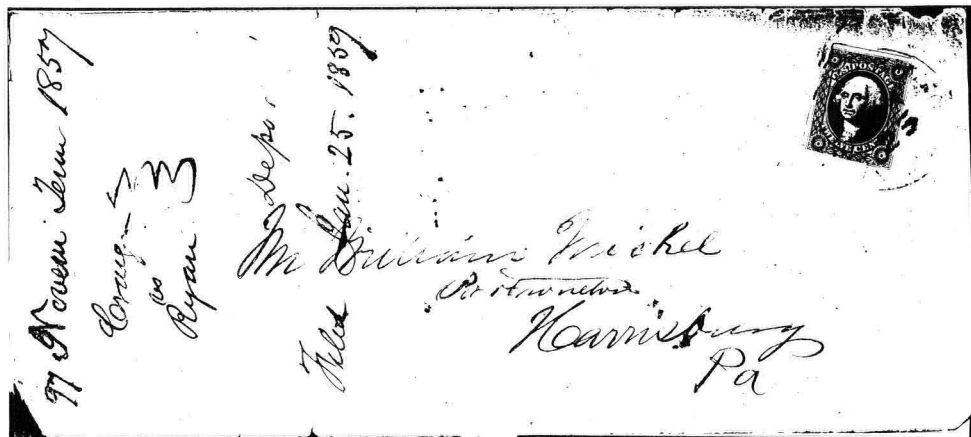 97 Novem Term 1857
Craig
vs
Ryan
Depo.
Filed Jan. 25. 1859
Mr William Wickel
Harrisburg
Pa
U.S. POSTAGE